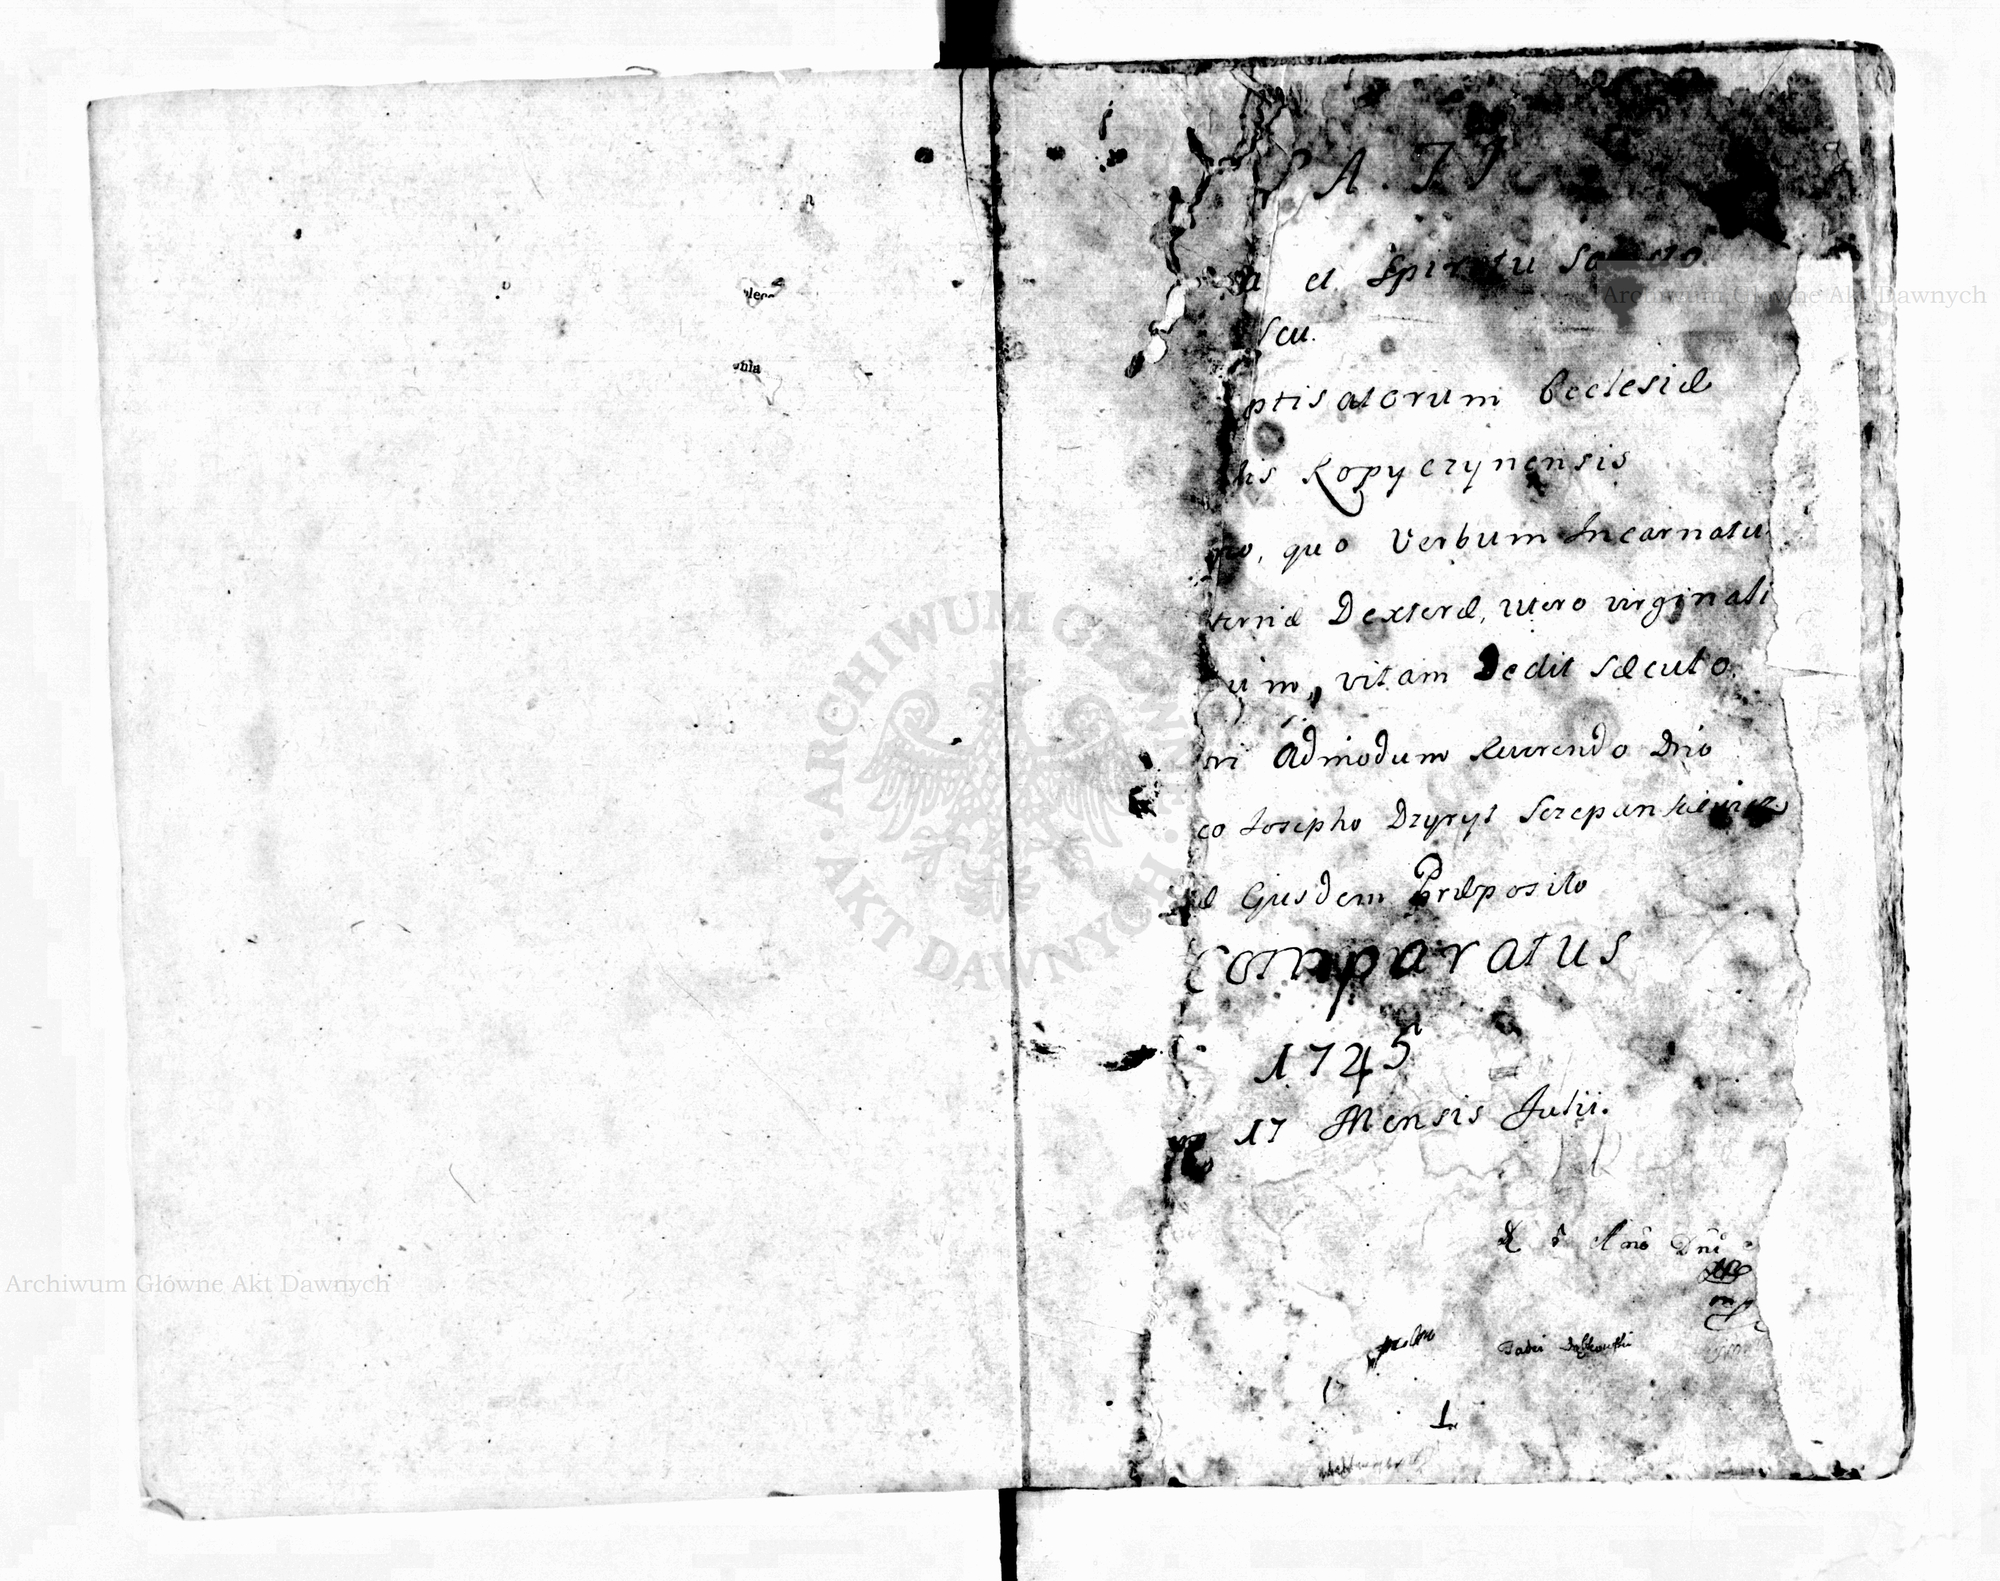 et Spiritu Sancto
seu.
ptisatorum Ecclesiæ
lis Kopyczynensis
quo Verbum Incarnatu
ternæ Dexteræ, utero virginali
um, vitam Dedit Sæculo.
ri Admodum Reverendo Dno
co Josepho Dzyryt Szczepankiewicz
æ Ejusdem Præposito
Comparatus
1745
17 Mensis Julii.
Anno Dni
Archiwum Główne Akt Dawnych
Archiwum Główne Akt Dawnych
ARCHIWUM GŁÓWNE AKT DAWNYCH